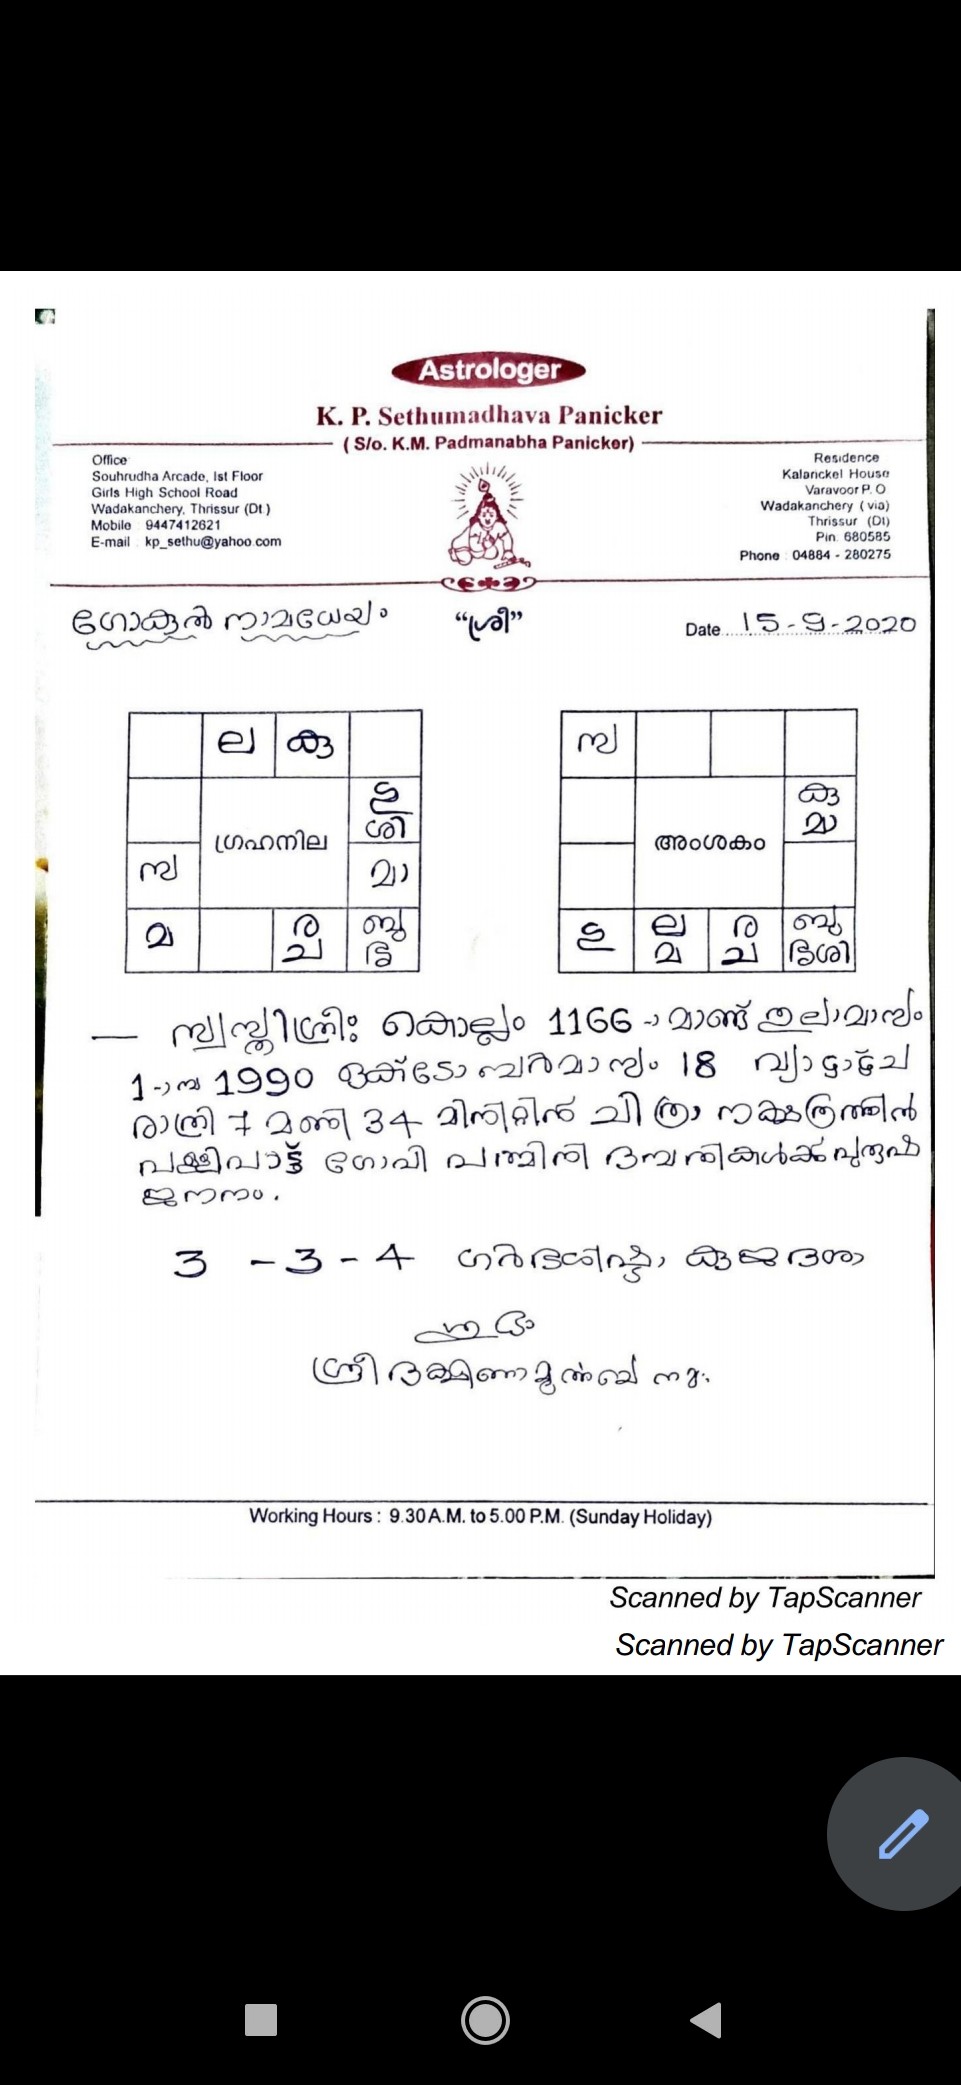 Astrologer
K. P. Sethumadhava Panicker
( S/o. K.M. Padmanabha Panicker)
Office
Souhrudha Arcade, Ist Floor
Girls High School Road
Wadakanchery, Thrissur (Dt.)
Mobile 9447412621
E-mail kp_sethu@yahoo.com
Residence
Kalarickel House
Varavoor P. O
Wadakanchery (via)
Thrissur (Dt)
Pin. 680585
Phone : 04884 - 280275
ഗോകുൽ നാമധേയം
“ശ്രീ”
Date 15-9-2020
ല കു
ഗു
ശി
ഗ്രഹനില
സ
മാ
മ
ര
ച
ബു
സ
കു
മാ
അംശകം
ഗു
ല
മ
ര
ച
ബു
ശി
സ്വസ്തിശ്രീഃ കൊല്ലം 1166 -ാമാണ്ട് തുലാമാസം
1-ാനു 1990 ഒക്ടോബർമാസം 18 വ്യാഴാഴ്ച
രാത്രി 7 മണി 34 മിനിറ്റിൽ ചിത്രാ നക്ഷത്രത്തിൽ
പള്ളിപാട്ട് ഗോപി പത്മിനി ദമ്പതികൾക്ക് പുരുഷ
ജനനം.
3 - 3 - 4 ഗർഭശിഷ്ടം കുജദശാ
ശുഭം
ശ്രീ ദക്ഷിണാമൂർത്തയേ നമഃ
Working Hours : 9.30 A.M. to 5.00 P.M. (Sunday Holiday)
Scanned by TapScanner
Scanned by TapScanner